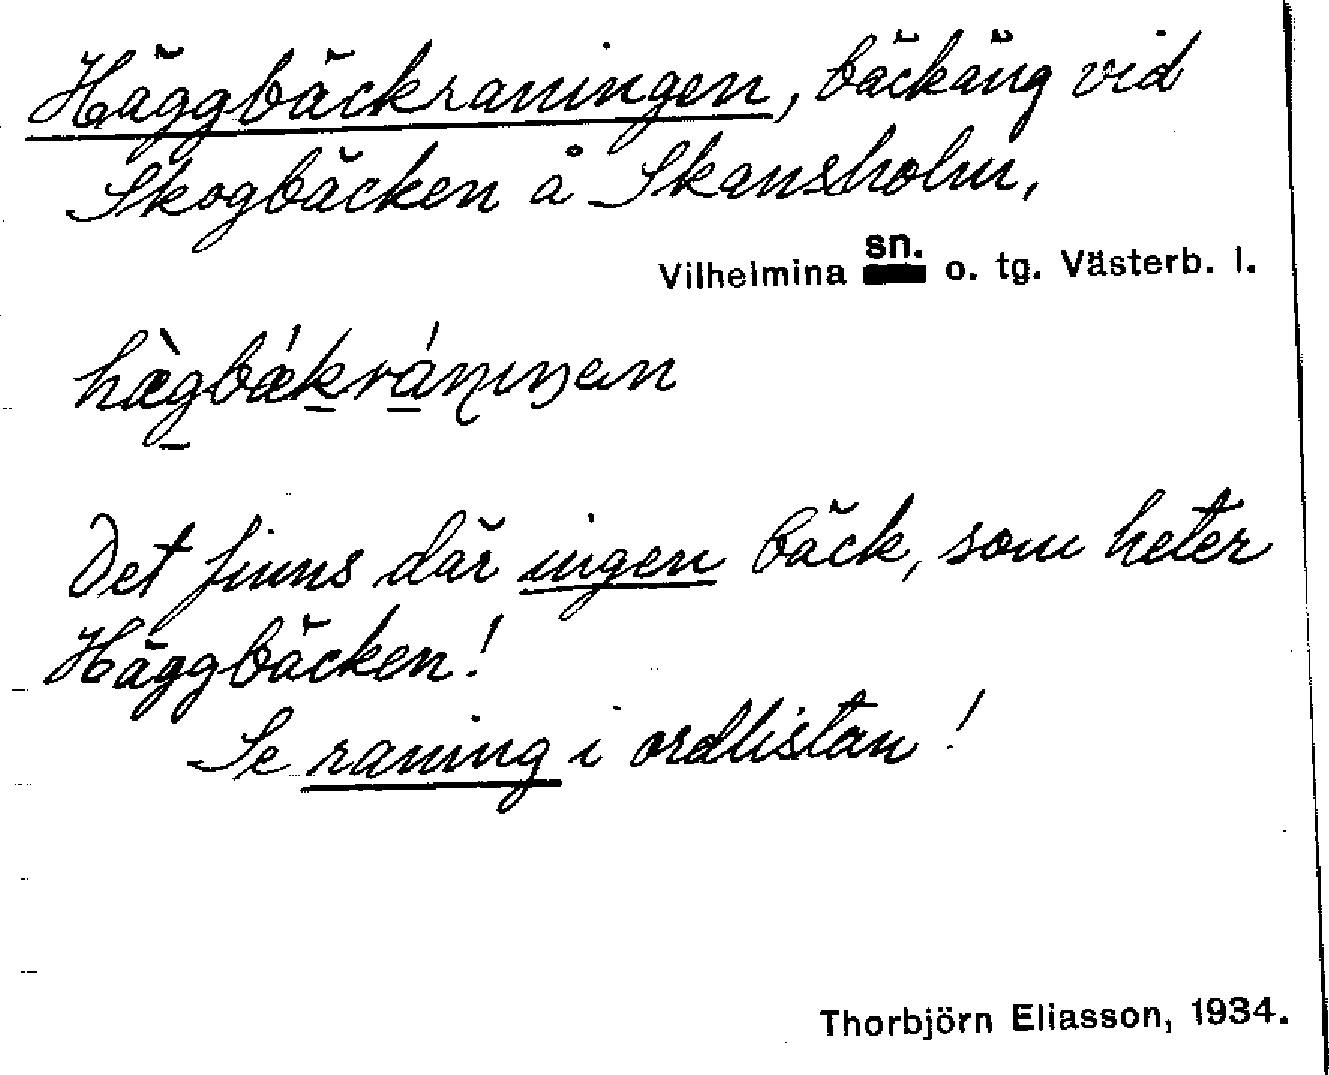 Häggbäckraningen, bäckäng vid
Skogbäcken å Skansholm,
Vilhelmina sn. o. tg. Västerb. l.
hæ̀gbækrániŋen
Det finns där ingen bäck, som heter
Häggbäcken!
Se raning i ordlistan!
Thorbjörn Eliasson, 1934.